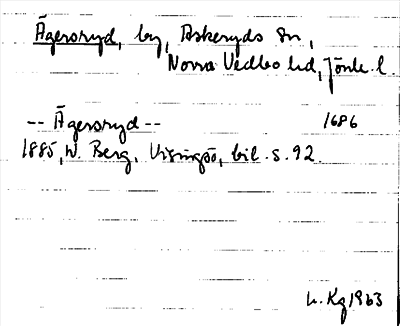 Ägersryd, by, Askeryds sn,
Norra Vedbo hd, Jönk. l.
-- Ägersryd -- 1686
1885, W. Berg, Visingsö, bil. s. 92.
L. Kg 1963